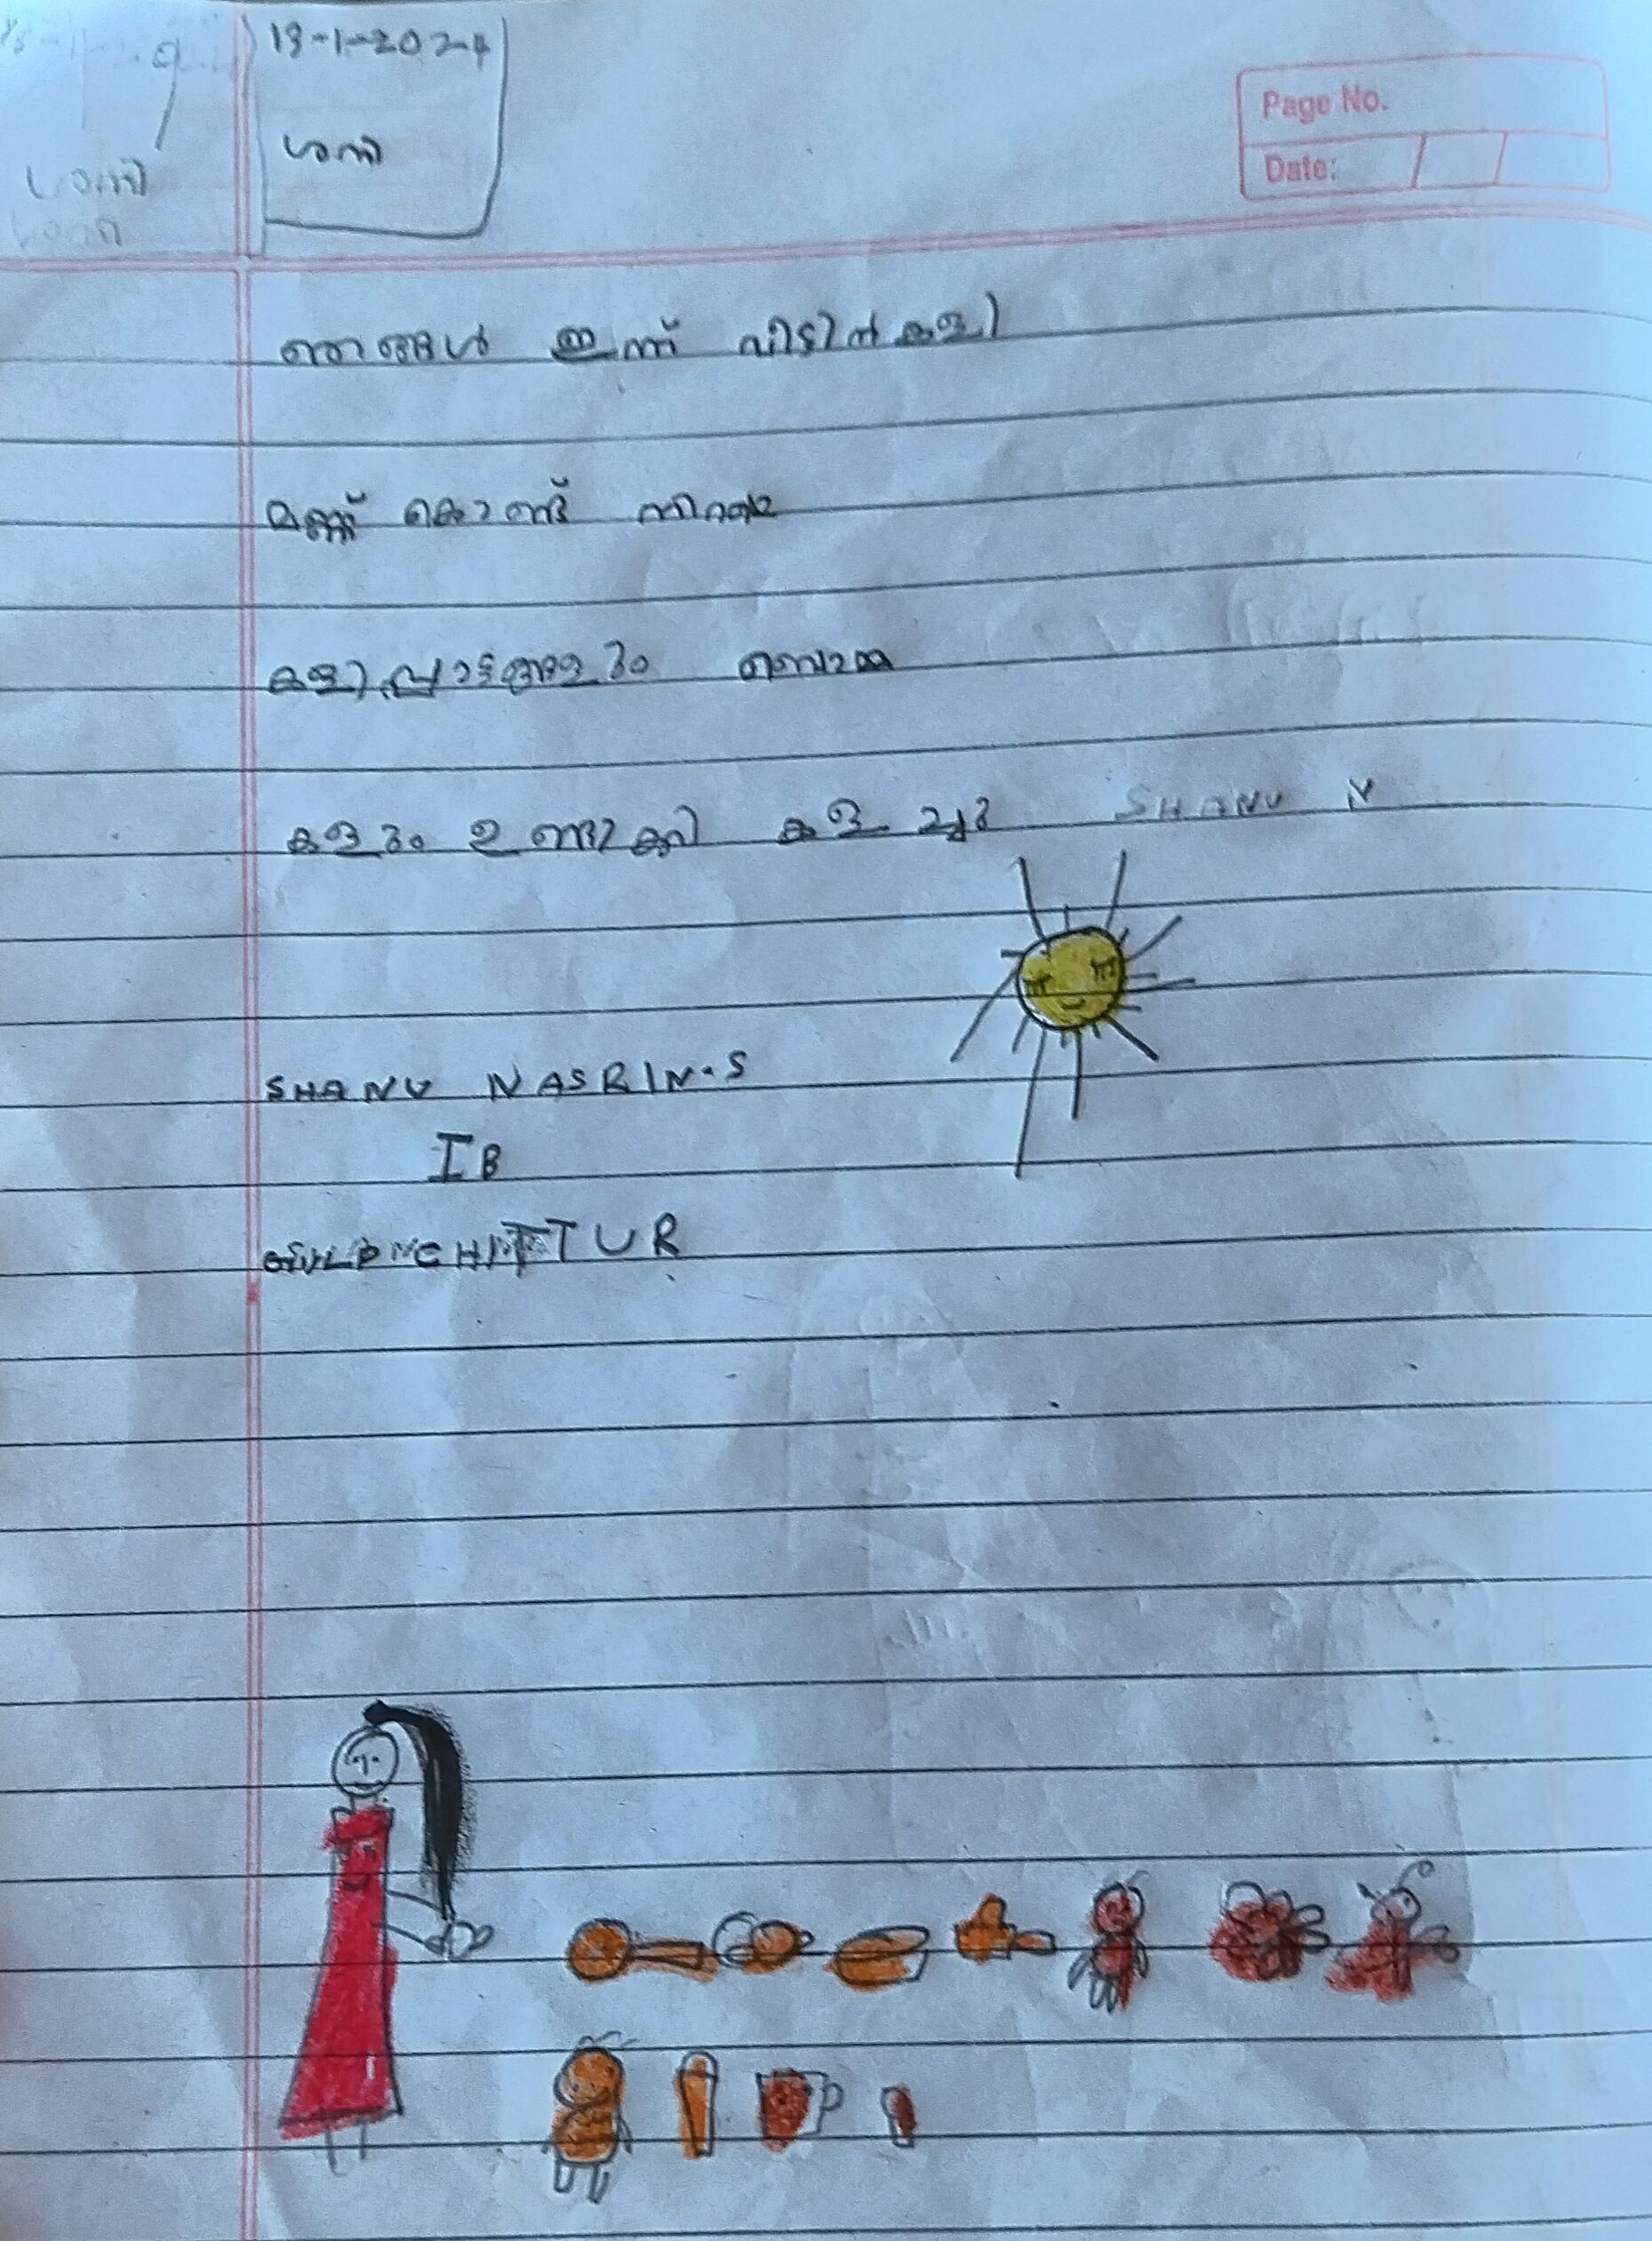 13-1-2024
ശനി
Page No.
Date:
ശനി
ഞങ്ങൾ ഇന്ന് വിട്ടിൽ കളി
മണ്ണ് കൊണ്ട് നിറയെ
കളിപ്പാട്ടങ്ങളും ബൊമ്മ
കളും ഉണ്ടാക്കി കളിച്ചു
SHANU N
SHANU NASRIN.S
I B
TUR